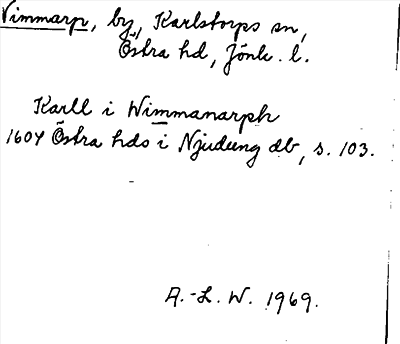 Vimmarp, by, Karlstorps sn,
Östra hd, Jönk. l.
Karll i Wimmanarph
1604 Östra hds i Njudung db, s. 103.
A.-L. W. 1969.